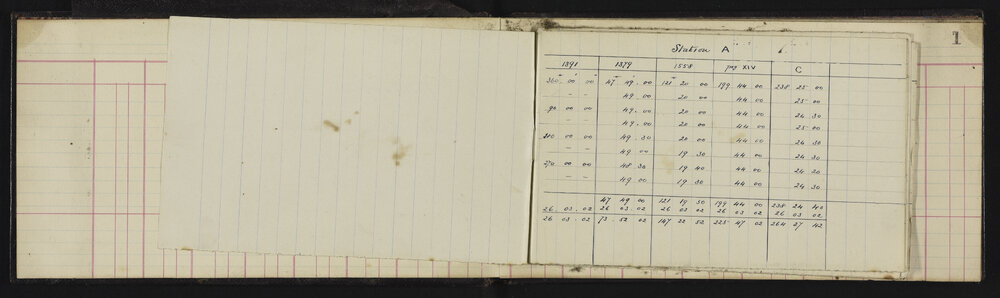 1
Station A 1.
1391 1379 1558 peg XIV C
360 00 00 47 49 00 121 20 00 199 44 00 238 25 00
– – 49 00 20 00 44 00 25 00
90 00 00 49 00 20 00 44 00 24 30
– – 49 00 20 00 44 00 25 00
180 00 00 49 30 20 00 44 00 24 30
– – 49 00 19 30 44 00 24 30
270 00 00 48 30 19 40 44 00 24 30
– – 49 00 19 30 44 00 24 30
47 49 00 121 19 50 199 44 00 238 24 40
26 03 02 26 03 02 26 03 02 26 03 02 26 03 02
26 03 02 73 52 02 147 22 52 225 47 02 264 27 42